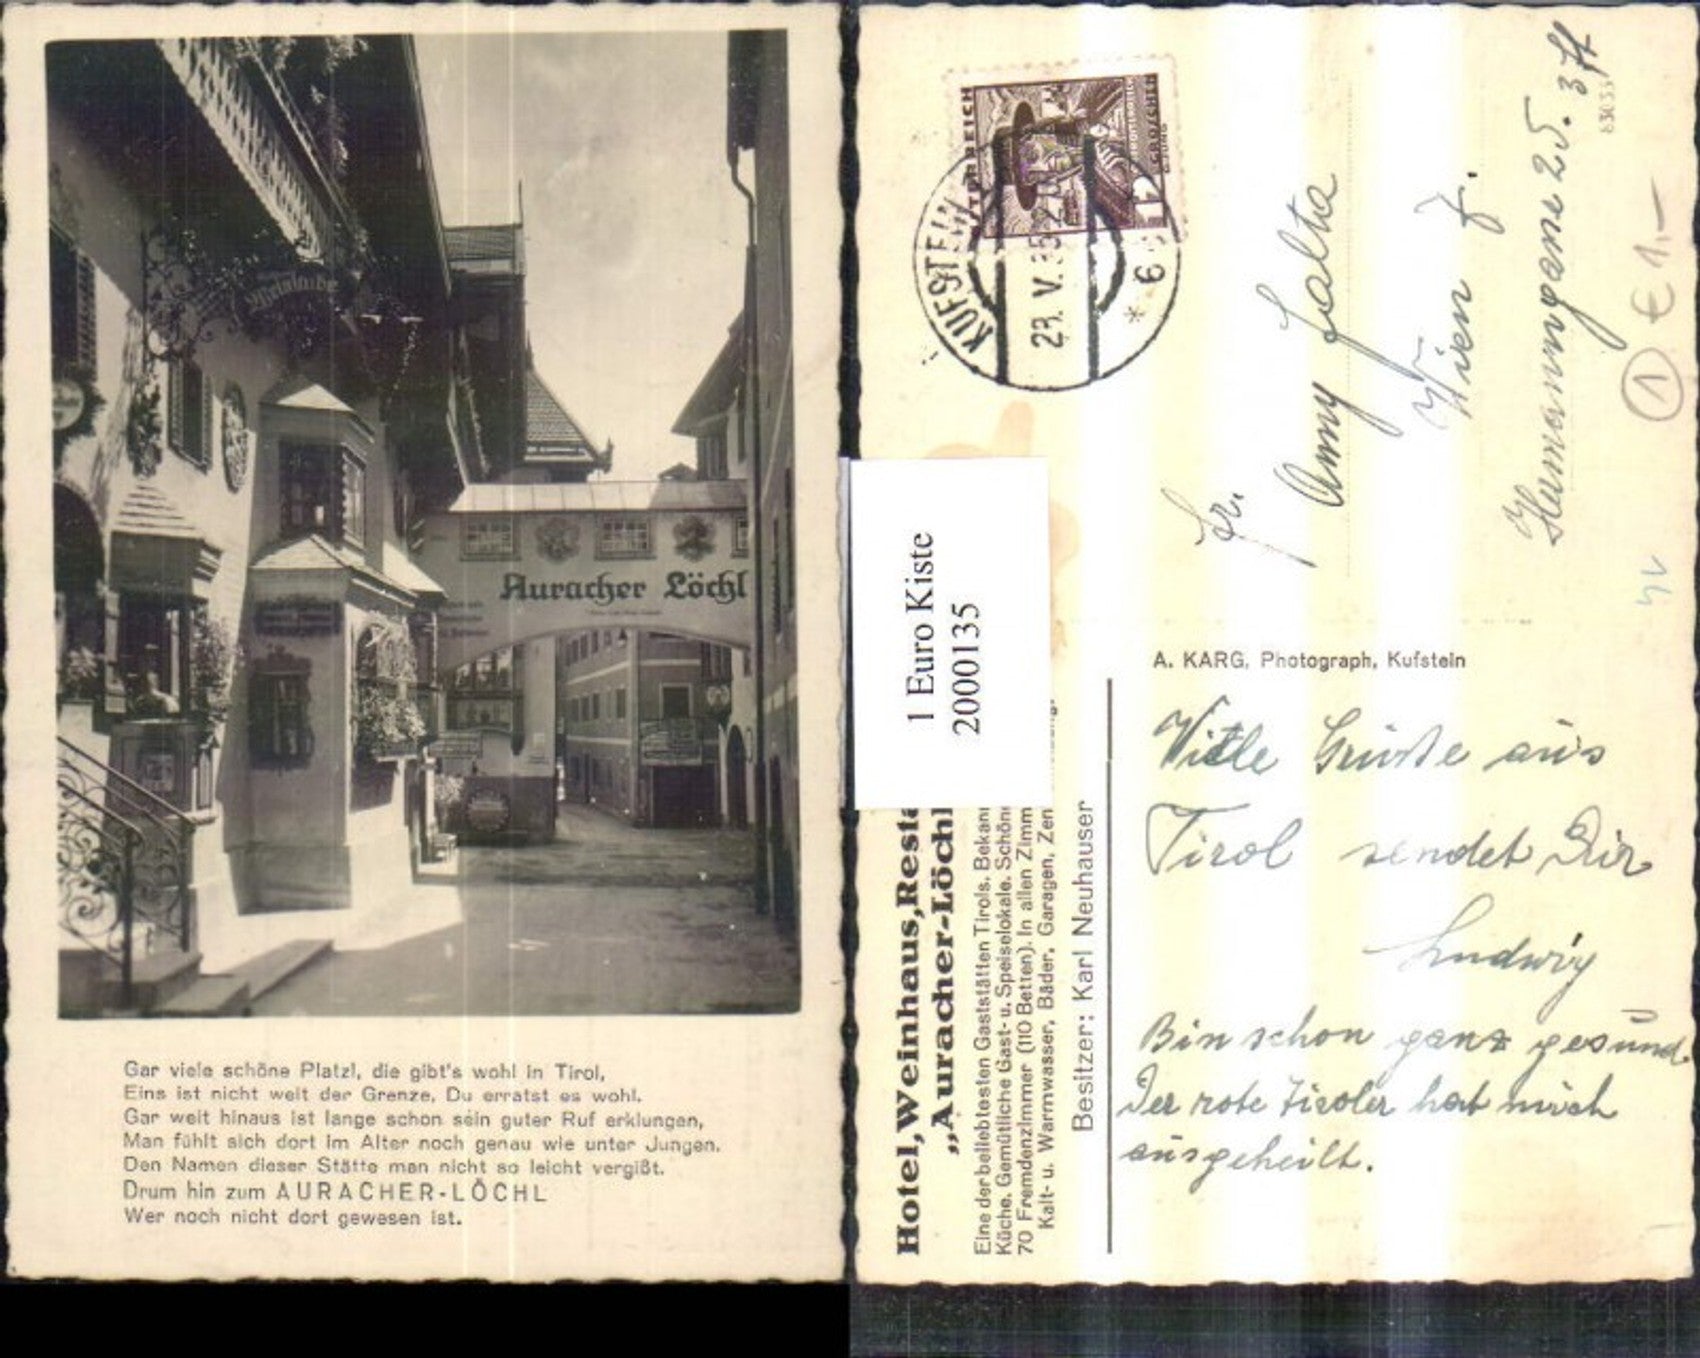 Weinstube
Auracher Löchl
Gar viele schöne Platzl, die gibt's wohl in Tirol,
Eins ist nicht weit der Grenze, Du erratst es wohl.
Gar weit hinaus ist lange schon sein guter Ruf erklungen,
Man fühlt sich dort im Alter noch genau wie unter Jungen.
Den Namen dieser Stätte man nicht so leicht vergißt.
Drum hin zum AURACHER-LÖCHL
Wer noch nicht dort gewesen ist.
ÖSTERREICH
12 GROSCHEN
KUFSTEIN
* 6
Fr.
Anny
Wien
25. 3
63033
① € 1,-
1 Euro Kiste
2000135
Hotel, Weinhaus, Resta
„Auracher-Löchl
Eine der beliebtesten Gaststätten Tirols. Bekann
Küche. Gemütliche Gast- u. Speiselokale. Schön
70 Fremdenzimmer (110 Betten). In allen Zimm
Kalt- u. Warmwasser, Bäder, Garagen, Zen
Besitzer: Karl Neuhauser
A. KARG, Photograph, Kufstein
Viele Grüsse aus
Tirol sendet Dir
Ludwig
Bin schon ganz gesund
Der rote Tiroler hat mich
ausgeheilt.